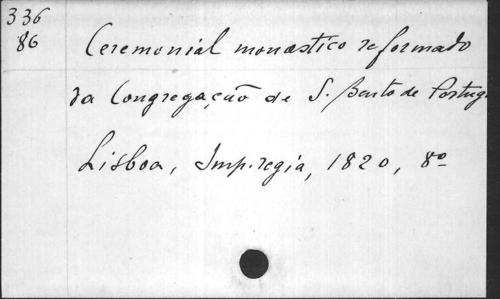 336
86
Ceremonial monastico reformado
da Congregação de S. Bento de Portug
Lisboa, Imp. regia, 1820, 8º